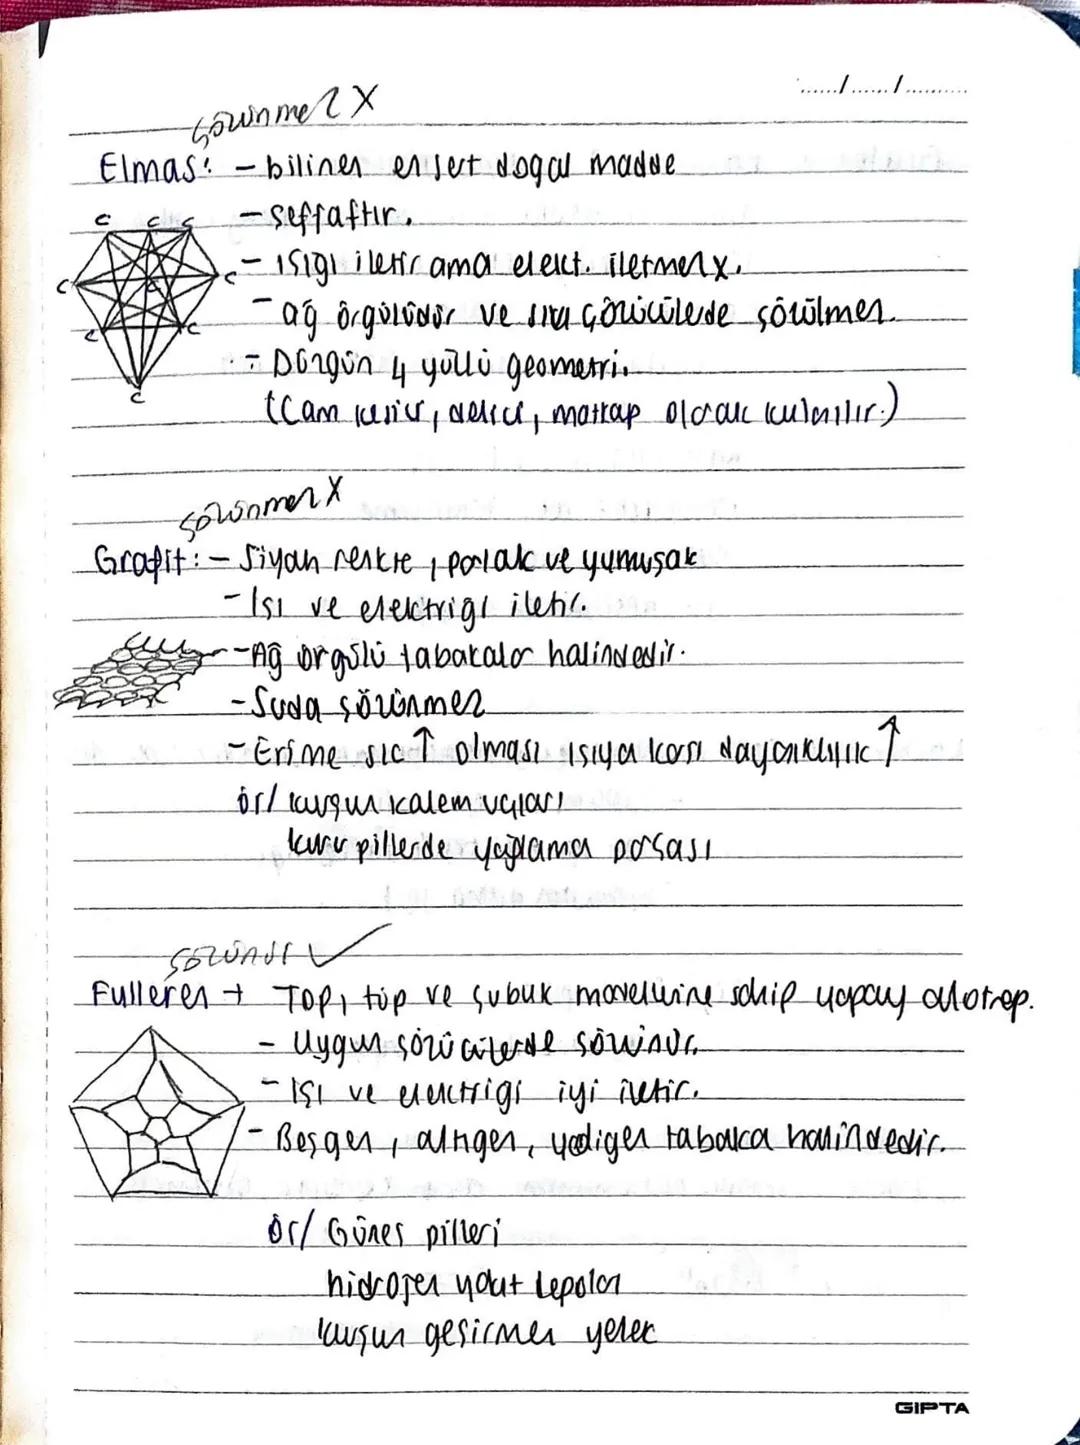 ....../....../..........
çözünmez X
Elmas: - bilinen en sert doğal madde
- şeffaftır.
- ısıgı iletir ama elekt. iletmez.
- ağ örgülüdür ve sıvı çözücülerde çözülmez.
- Düzgün 4 yüzlü geometri.
(Cam kesici, delici, matkap olarak kulanılır.)
C C C
C C
C
C C
C
çözünmez X
Grafit: - Siyah renkte, parlak ve yumuşak
- Isı ve elektrigi iletir.
- Ağ örgülü tabakalar halindedir.
- Suda çözünmez
- Erime sıc ↑ olması ısıya karsı dayanıklılık ↑
ör/ kurşun kalem uçları
kuru pillerde yağlama parçası
çözünür ✓
Fulleren → Top, tüp ve çubuk modellerine sahip yapay allotrop.
- Uygun çözücülerde çözünür.
- Isı ve elektrigi iyi iletir.
- Beşgen, altıgen, yedigen tabaka halindedir.
ör/ Günes pilleri
hidrojen yakıt depoları
kurşun geçirmez yelek
GIPTA